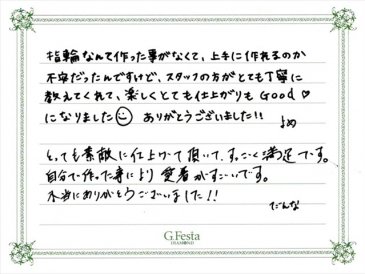 指輪なんて作った事がなくて、上手に作れるのか
不安だったんですけど、スタッフの方がとても丁寧に
教えてくれて、楽しくとても仕上がりもGood♡
になりました☺ ありがとうございました!!
よめ
とっても素敵に仕上げて頂いて、すっごく満足です。
自分で作った事により愛着がすごいです。
本当にありがとうございました!!
だんな
G.Festa
DIAMOND